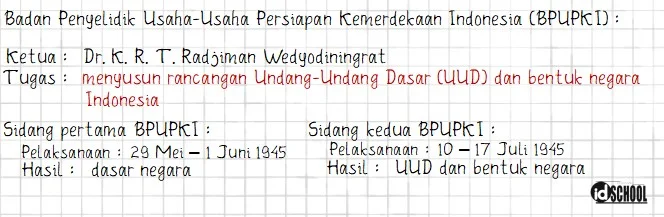 Badan Penyelidik Usaha-Usaha Persiapan Kemerdekaan Indonesia (BPUPKI) :
Ketua : Dr. K. R. T. Radjiman Wedyodiningrat
Tugas : menyusun rancangan Undang-Undang Dasar (UUD) dan bentuk negara
Indonesia
Sidang pertama BPUPKI :
Pelaksanaan : 29 Mei – 1 Juni 1945
Hasil : dasar negara
Sidang kedua BPUPKI :
Pelaksanaan : 10 – 17 Juli 1945
Hasil : UUD dan bentuk negara
idSCHOOL